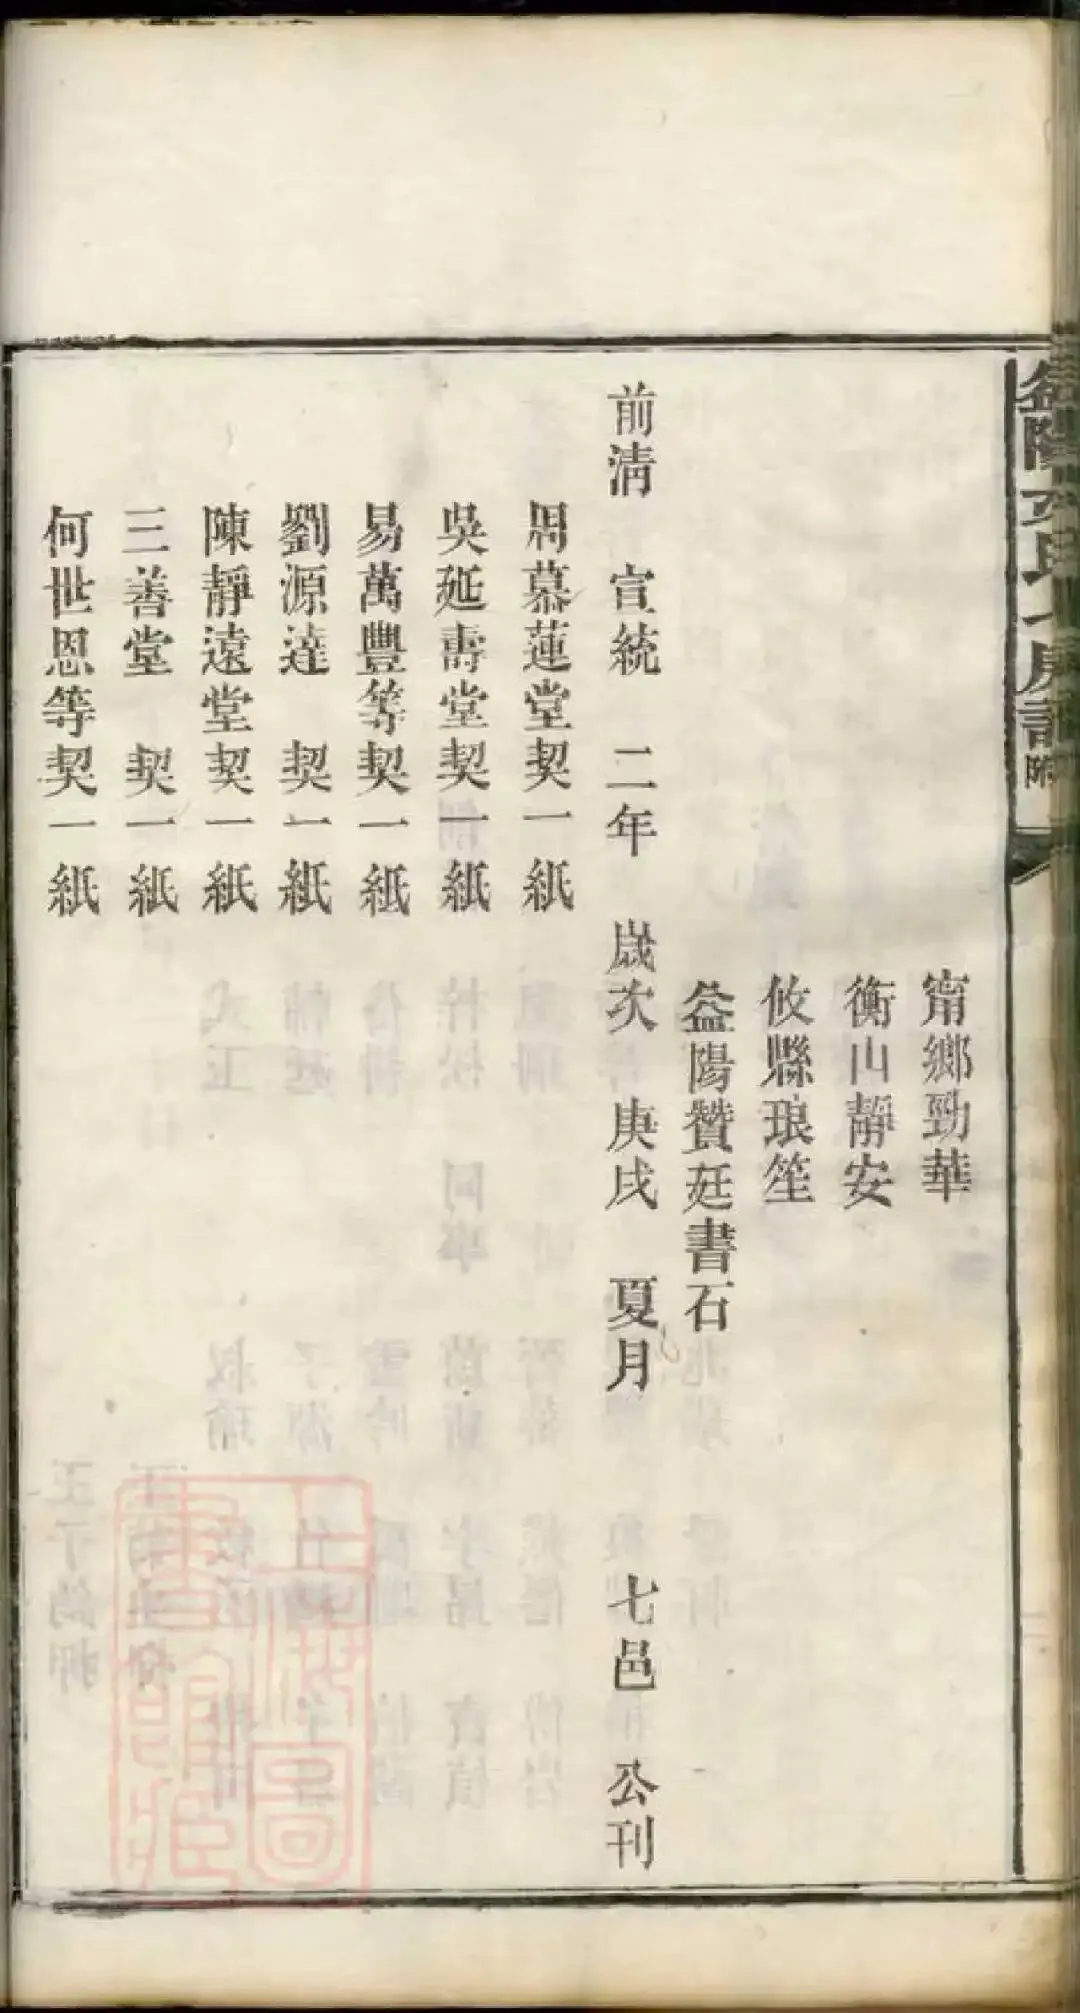 甯鄉勁華
衡山靜安
攸縣琅笙
益陽贊廷書石
前清 宣統 二年 歲次 庚戌 夏月 七邑 公刊
周慕蓮堂契一紙
吳延壽堂契一紙
易萬豐等契一紙
劉源達 契一紙
陳靜遠堂契一紙
三善堂 契一紙
何世恩等契一紙
上海圖書館藏